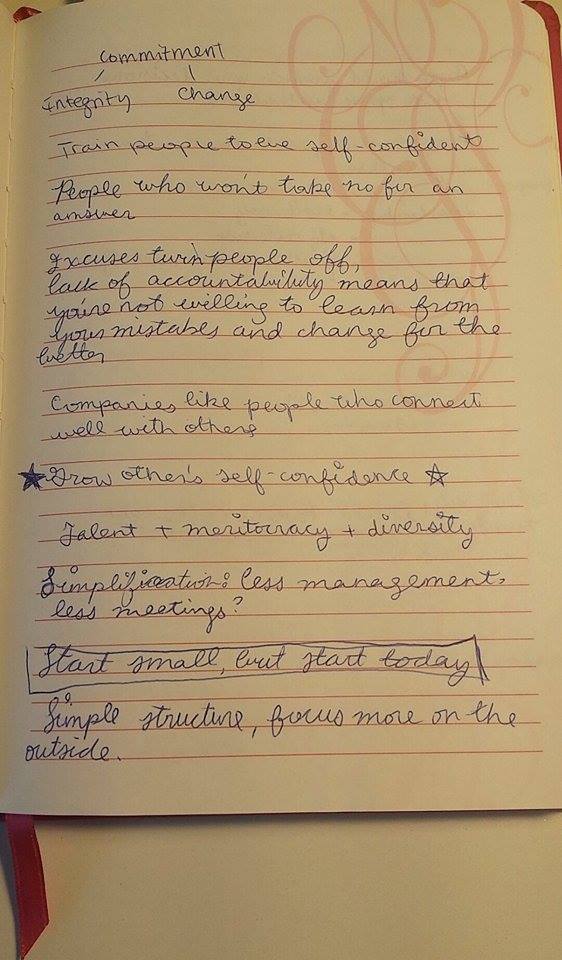 Commitment
Integrity Change
Train people to be self-confident
People who won't take no for an
answer
Excuses turn people off,
lack of accountability means that
you're not willing to learn from
your mistakes and change for the
better
Companies like people who connect
well with others
★ Grow other's self-confidence ☆
Talent + meritocracy + diversity
Simplification: less management,
less meetings?
Start small, but start today
Simple structure, focus more on the
outside.